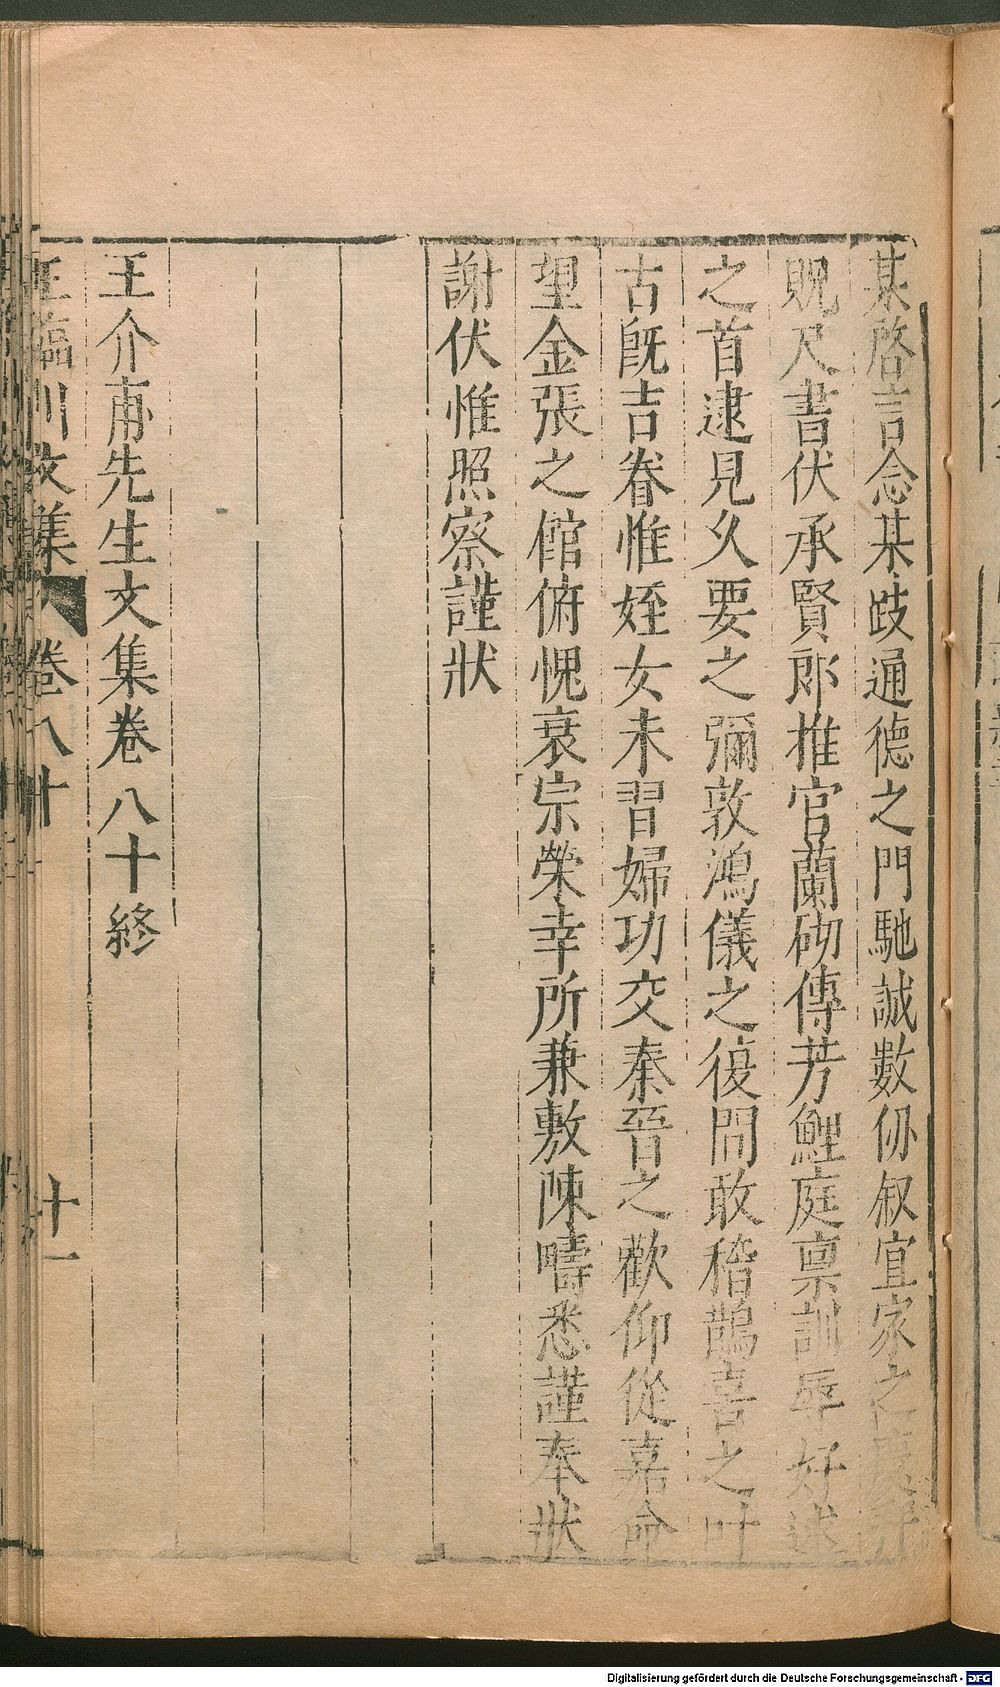 某啓言念某歧通德之門馳誠數仞叙宜家之慶辭
貺尺書伏承賢郎推官蘭砌傳芳鯉庭禀訓辱好逑
之首逮見久要之彌敦鴻儀之復問敢稽鵲喜之叶
古旣吉眷惟姪女未習婦功交秦晉之歡仰從嘉命
望金張之館俯愧衰宗榮幸所兼敷陳疇悉謹奉狀
謝伏惟照察謹狀
王介甫先生文集卷八十終
王臨川文集 卷八十 十一
Digitalisierung gefördert durch die Deutsche Forschungsgemeinschaft - DFG